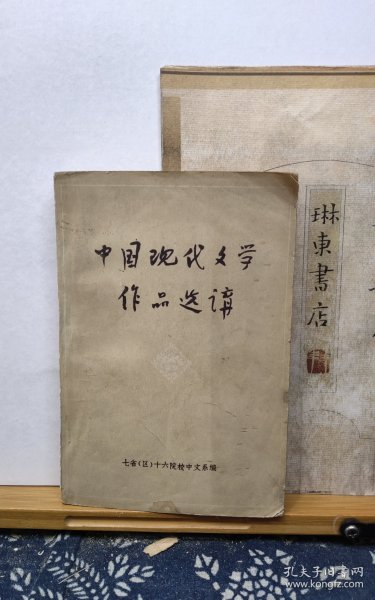 中国现代文学
作品选讲
七省(区)十六院校中文系编
琳東書店
孔夫子旧书网